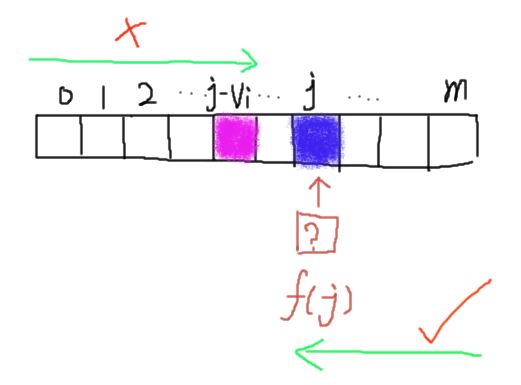 ×
0 1 2 ... j-Vi ... j .... m
?
f(j)
✓